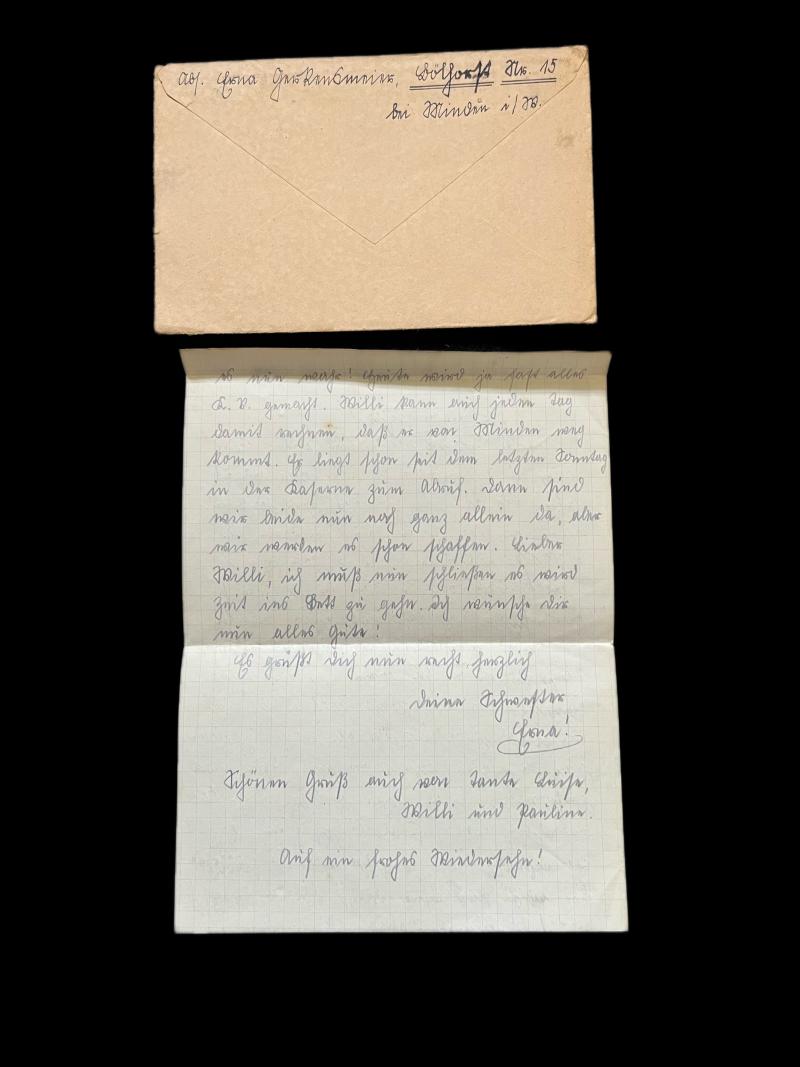 Abs. Erna Gerkensmeier, Bölhorst Nr. 15
bei Minden i/W.
es nun wahr! Heute wird ja fast alles
K. V. gemacht. Willi kann auch jeden Tag
damit rechnen, daß er von Minden weg
kommt. Er liegt schon seit dem letzten Sonntag
in der Kaserne zum Abruf. Dann sind
wir beide nun noch ganz allein da, aber
wir werden es schon schaffen. Lieber
Willi, ich muß nun schließen es wird
Zeit ins Bett zu gehn. Ich wünsche Dir
nun alles Gute!
Es grüßt Dich nun recht herzlich
Deine Schwester
Erna!
Schönen Gruß auch von Tante Luise,
Willi und Pauline.
Auf ein frohes Wiedersehn!